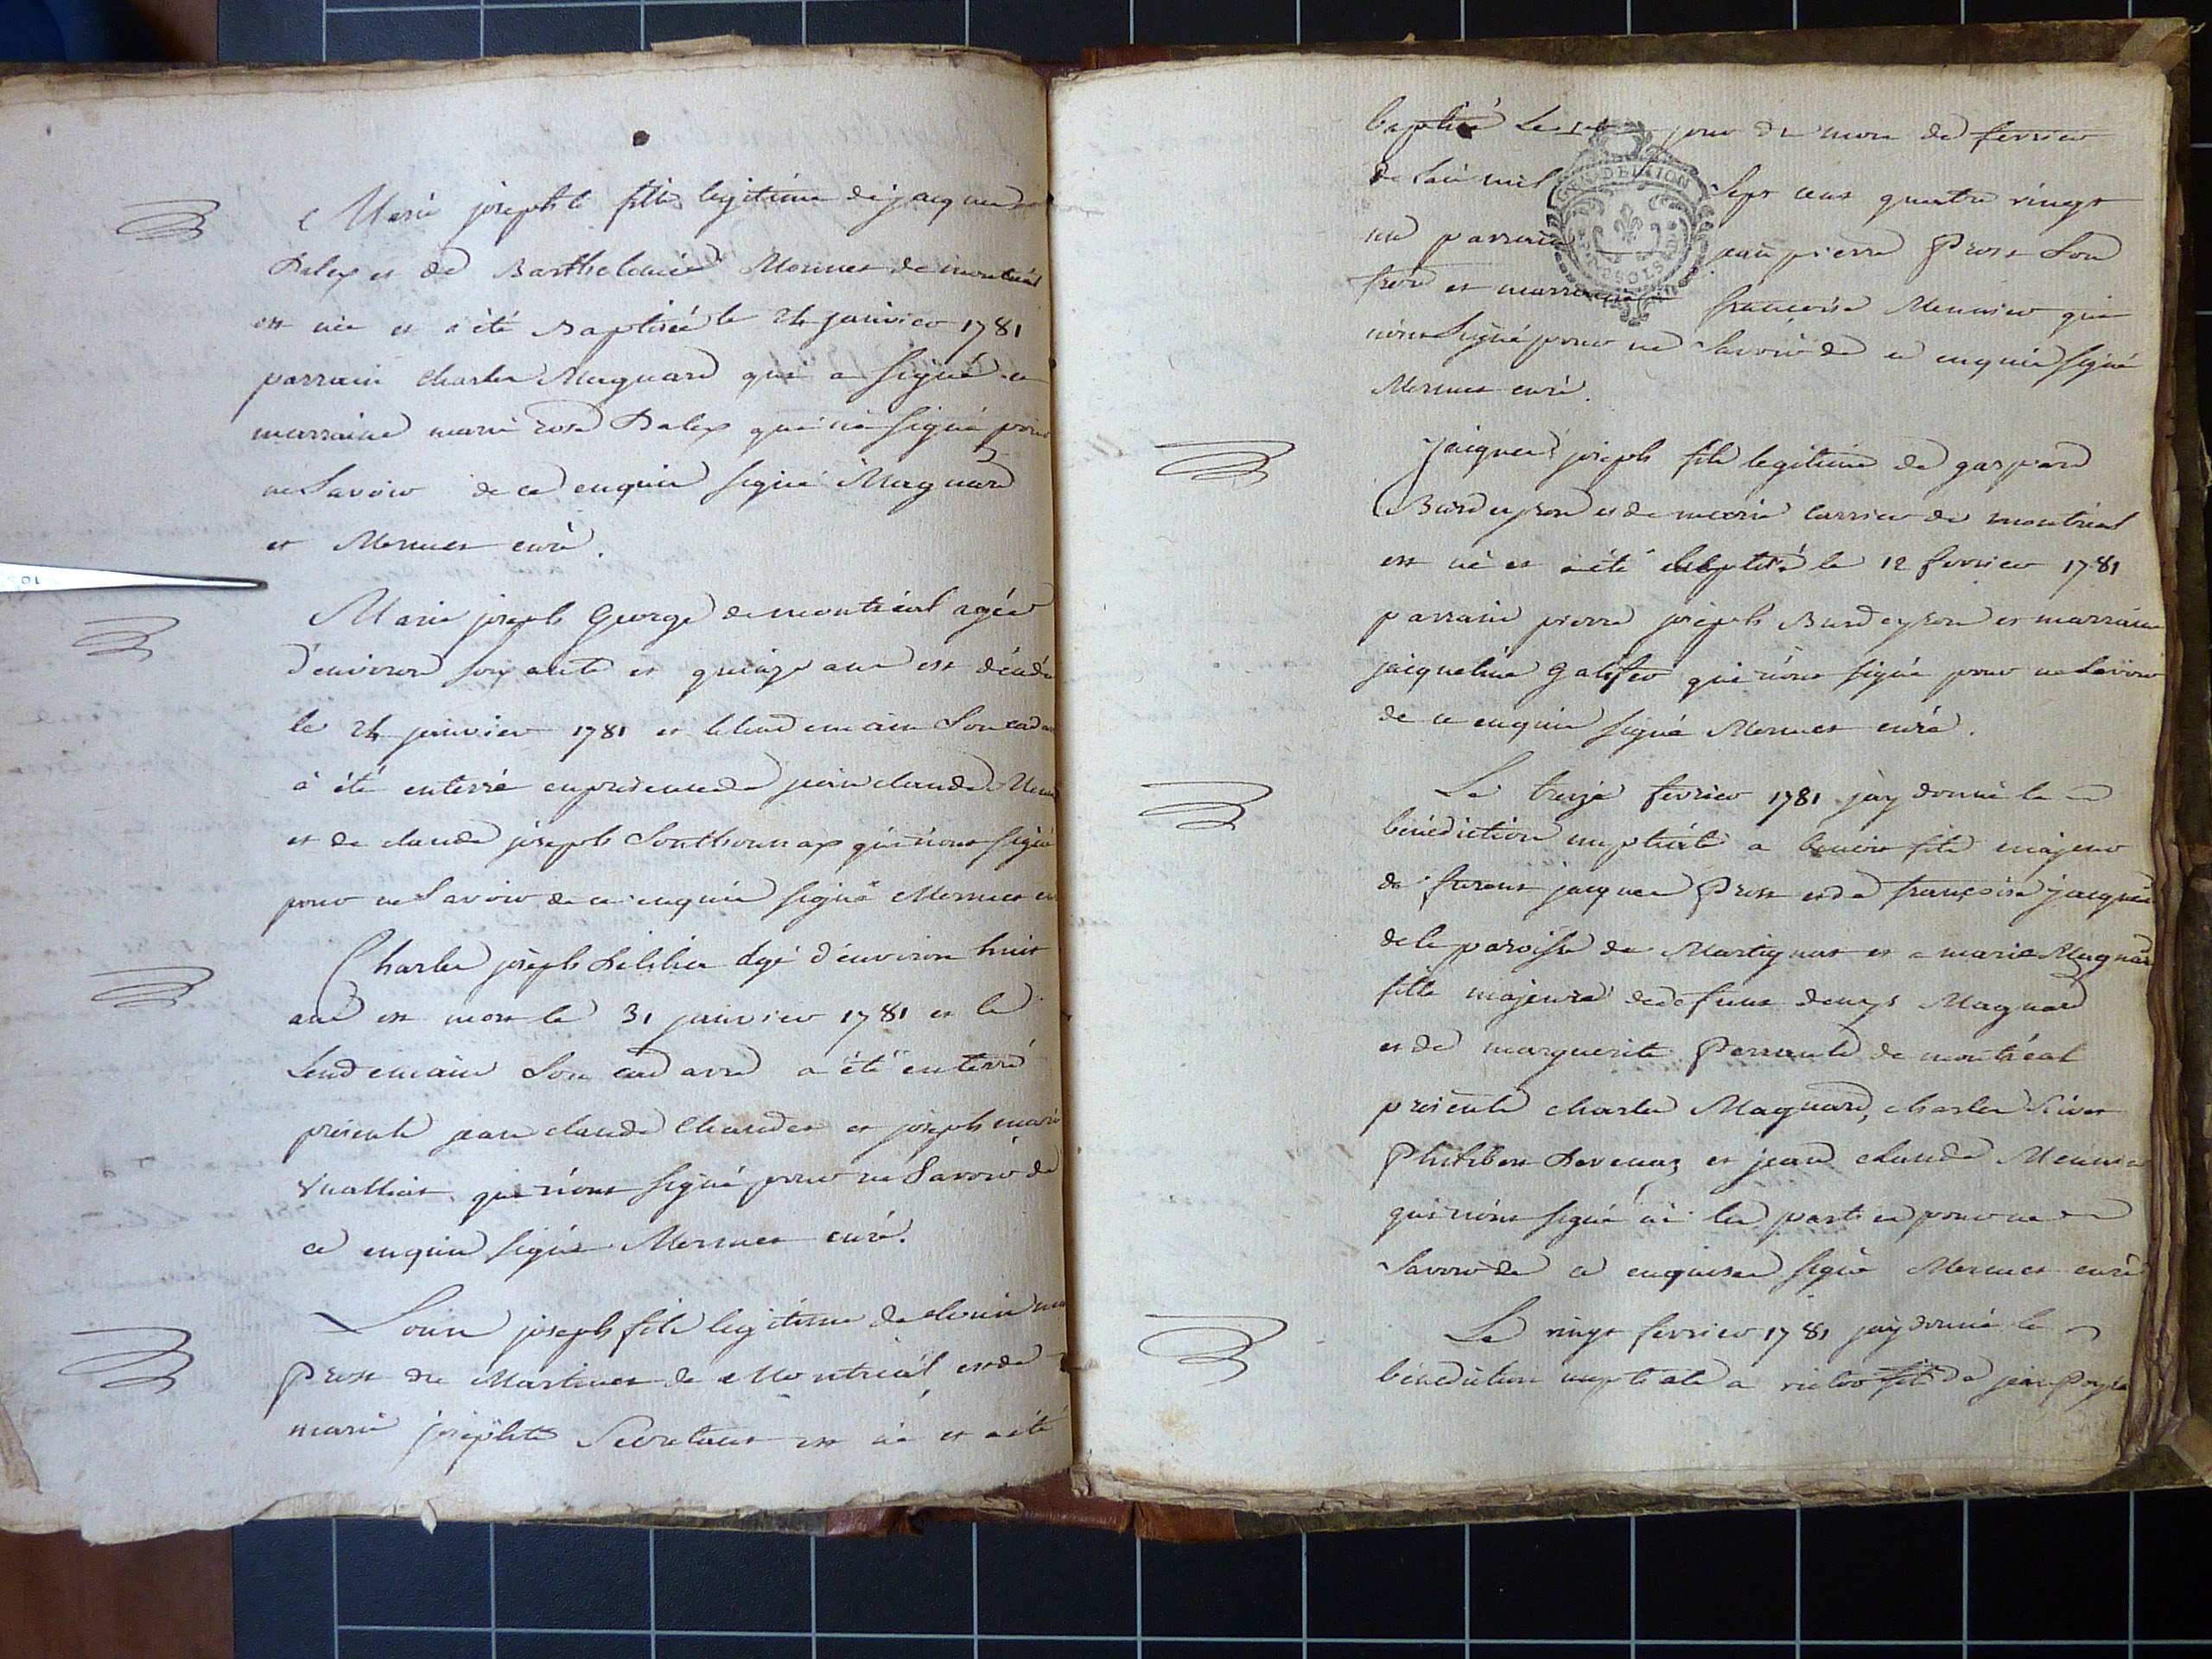 Marie josephte fille legitime de jacque
Dalex et de Barthelemie Mermet de montreal
est née et a été Baptisée le 24 janvier 1781
parrain charles Magnard qui a signé et
marraine marie rose Dalex qui n'a signé pour
ne Savoir de ce enquise signé Magnard
et Mermet curé.
Marie joseph George de montreal agée
d'environ soixante et quinze ans est décédée
le 24 janvier 1781 et le lendemain Son cadavre
à été enterré en presence de jean claude
et de claude joseph Sonthonnax qui n'ont signé
pour ne Savoir de ce enquis signé Mermet curé
Charles joseph agé d'environ huit
ans est mort le 31 janvier 1781 et le
Lendemain Son cadavre a été enterré
présents jean claude Chaudet et joseph marie
Vuaillat qui n'ont signé pour ne Savoir de
ce enquis signé Mermet curé.
Louis joseph fils legitime de
Prost du Martinet de Montréal et de
marie josephte Secretant est né et a été
baptisé Le jour du mois de fevrier
de l'an mil Sept cent quatre vingt
un parrain jean pierre Prost Son
frère et marraine francoise Meunier qui
n'ont Signé pour ne Savoir de ce enquis signé
Mermet curé.
jacques joseph fils legitime de gaspard
Burdeyron et de marie carrier de montréal
est né et a été baptisé le 12 fevrier 1781
parrain pierre joseph Burdeyron et marraine
jacqueline galifer qui n'ont signé pour ne Savoir
de ce enquis signé Mermet curé.
Le treize fevrier 1781 jay donné la
bénédiction nuptiale a benoit fils majeur
de furent jacques Prost et de françoise jacquet
de la paroisse de Martignat et a marie Magnard
fille majeure de defunt denys Magnard
et de marguerite de montréal
présents charles Magnard, charles
Philibert et jean claude Meunier
qui n'ont signé ni les parties pour ne
Savoir de ce enquises signé Mermet curé
Le vingt fevrier 1781 jay donné la
bénédiction nuptiale a victor fils de jean